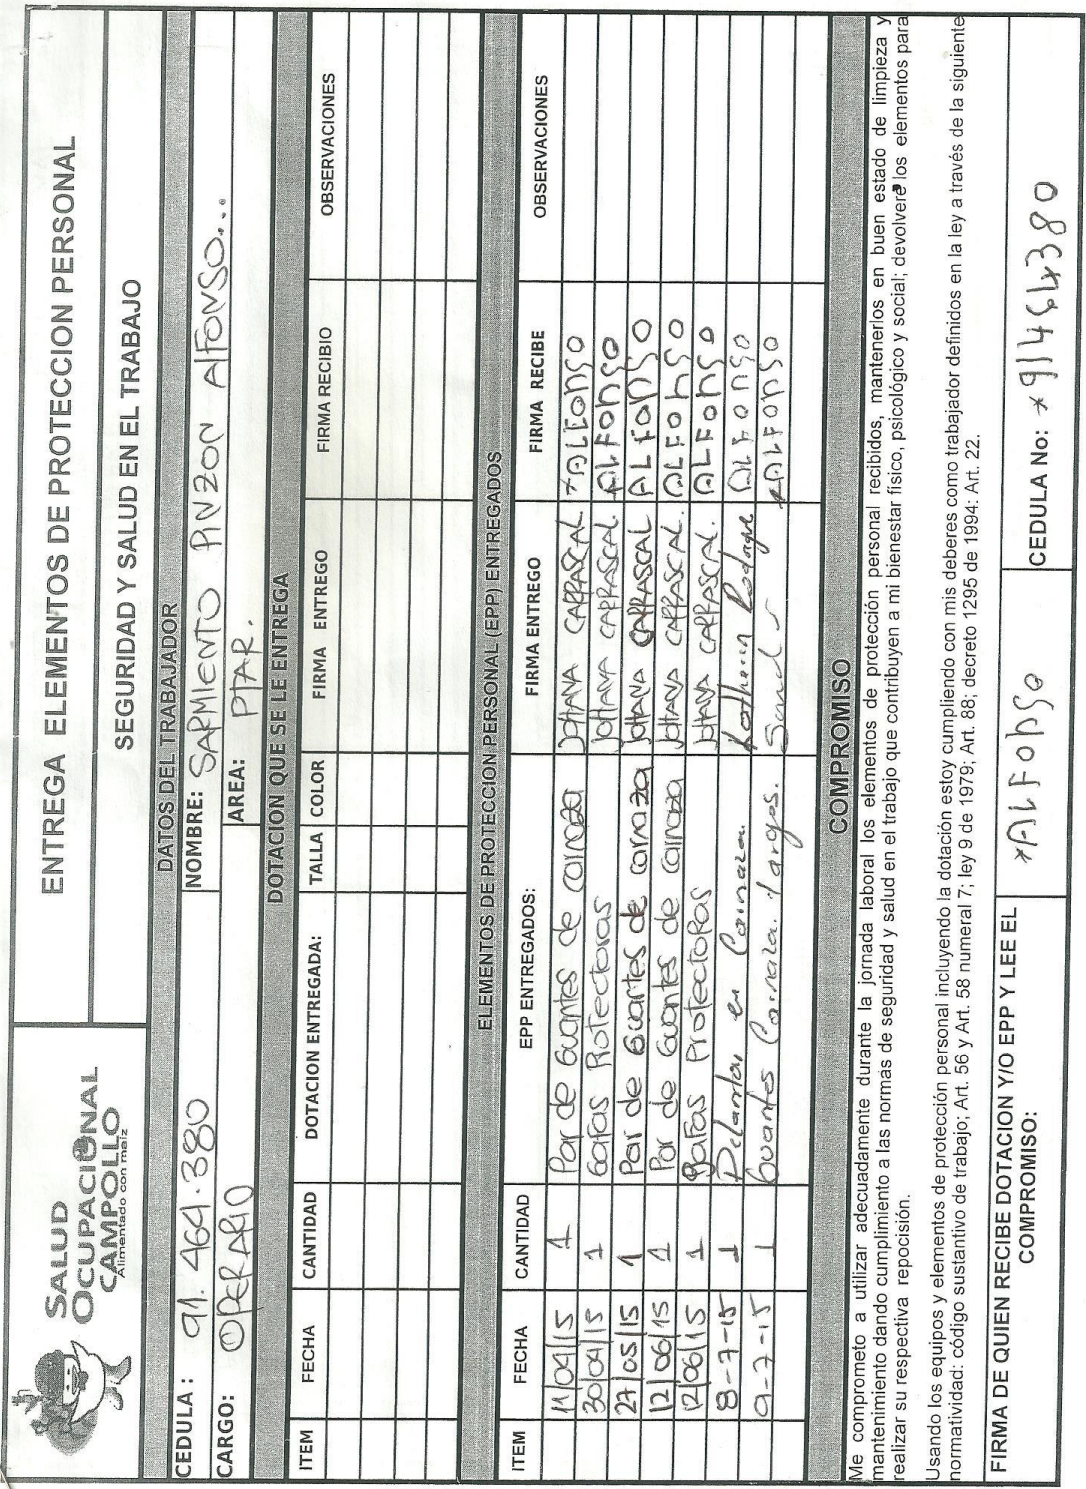 SALUD
OCUPACIONAL
CAMPOLLO
Alimentado con maíz
ENTREGA ELEMENTOS DE PROTECCION PERSONAL
SEGURIDAD Y SALUD EN EL TRABAJO
DATOS DEL TRABAJADOR
CEDULA : 91.464.380 NOMBRE: SARMIENTO PINZON AlFONSO...
CARGO: OPERARIO AREA: PTAR.
DOTACION QUE SE LE ENTREGA
ITEM FECHA CANTIDAD DOTACION ENTREGADA: TALLA COLOR FIRMA ENTREGO FIRMA RECIBIO OBSERVACIONES
ELEMENTOS DE PROTECCION PERSONAL (EPP) ENTREGADOS
ITEM FECHA CANTIDAD EPP ENTREGADOS: FIRMA ENTREGO FIRMA RECIBE OBSERVACIONES
11/04/15 1 Par de Guantes de carnaza JOHANA CARRASCAL *ALFONSO
30/04/15 1 Gafas Protectoras JOHANA CARRASCAL. ALFONSO
27/05/15 1 Par de Guantes de carnaza JOHANA CARRASCAL ALFONSO
12/06/15 1 Par de Guantes de carnaza JOHANA CARRASCAL. ALFONSO
12/06/15 1 Gafas Protectoras JOHANA CARRASCAL. ALFONSO
8-7-15 1 Delantar en Carnaza. Katherin Rodrigue ALFONSO
9-7-15 1 Guantes Carnaza largos. *ALFONSO
COMPROMISO
Me comprometo a utilizar adecuadamente durante la jornada laboral los elementos de protección personal recibidos, mantenerlos en buen estado de limpieza y
mantenimiento dando cumplimiento a las normas de seguridad y salud en el trabajo que contribuyen a mi bienestar físico, psicológico y social; devolveré los elementos para
realizar su respectiva reposición.
Usando los equipos y elementos de protección personal incluyendo la dotación estoy cumpliendo con mis deberes como trabajador definidos en la ley a través de la siguiente
normatividad: código sustantivo de trabajo; Art. 56 y Art. 58 numeral 7; ley 9 de 1979; Art. 88; decreto 1295 de 1994: Art. 22.
FIRMA DE QUIEN RECIBE DOTACION Y/O EPP Y LEE EL
COMPROMISO:
*ALFONSO
CEDULA No: *91464380